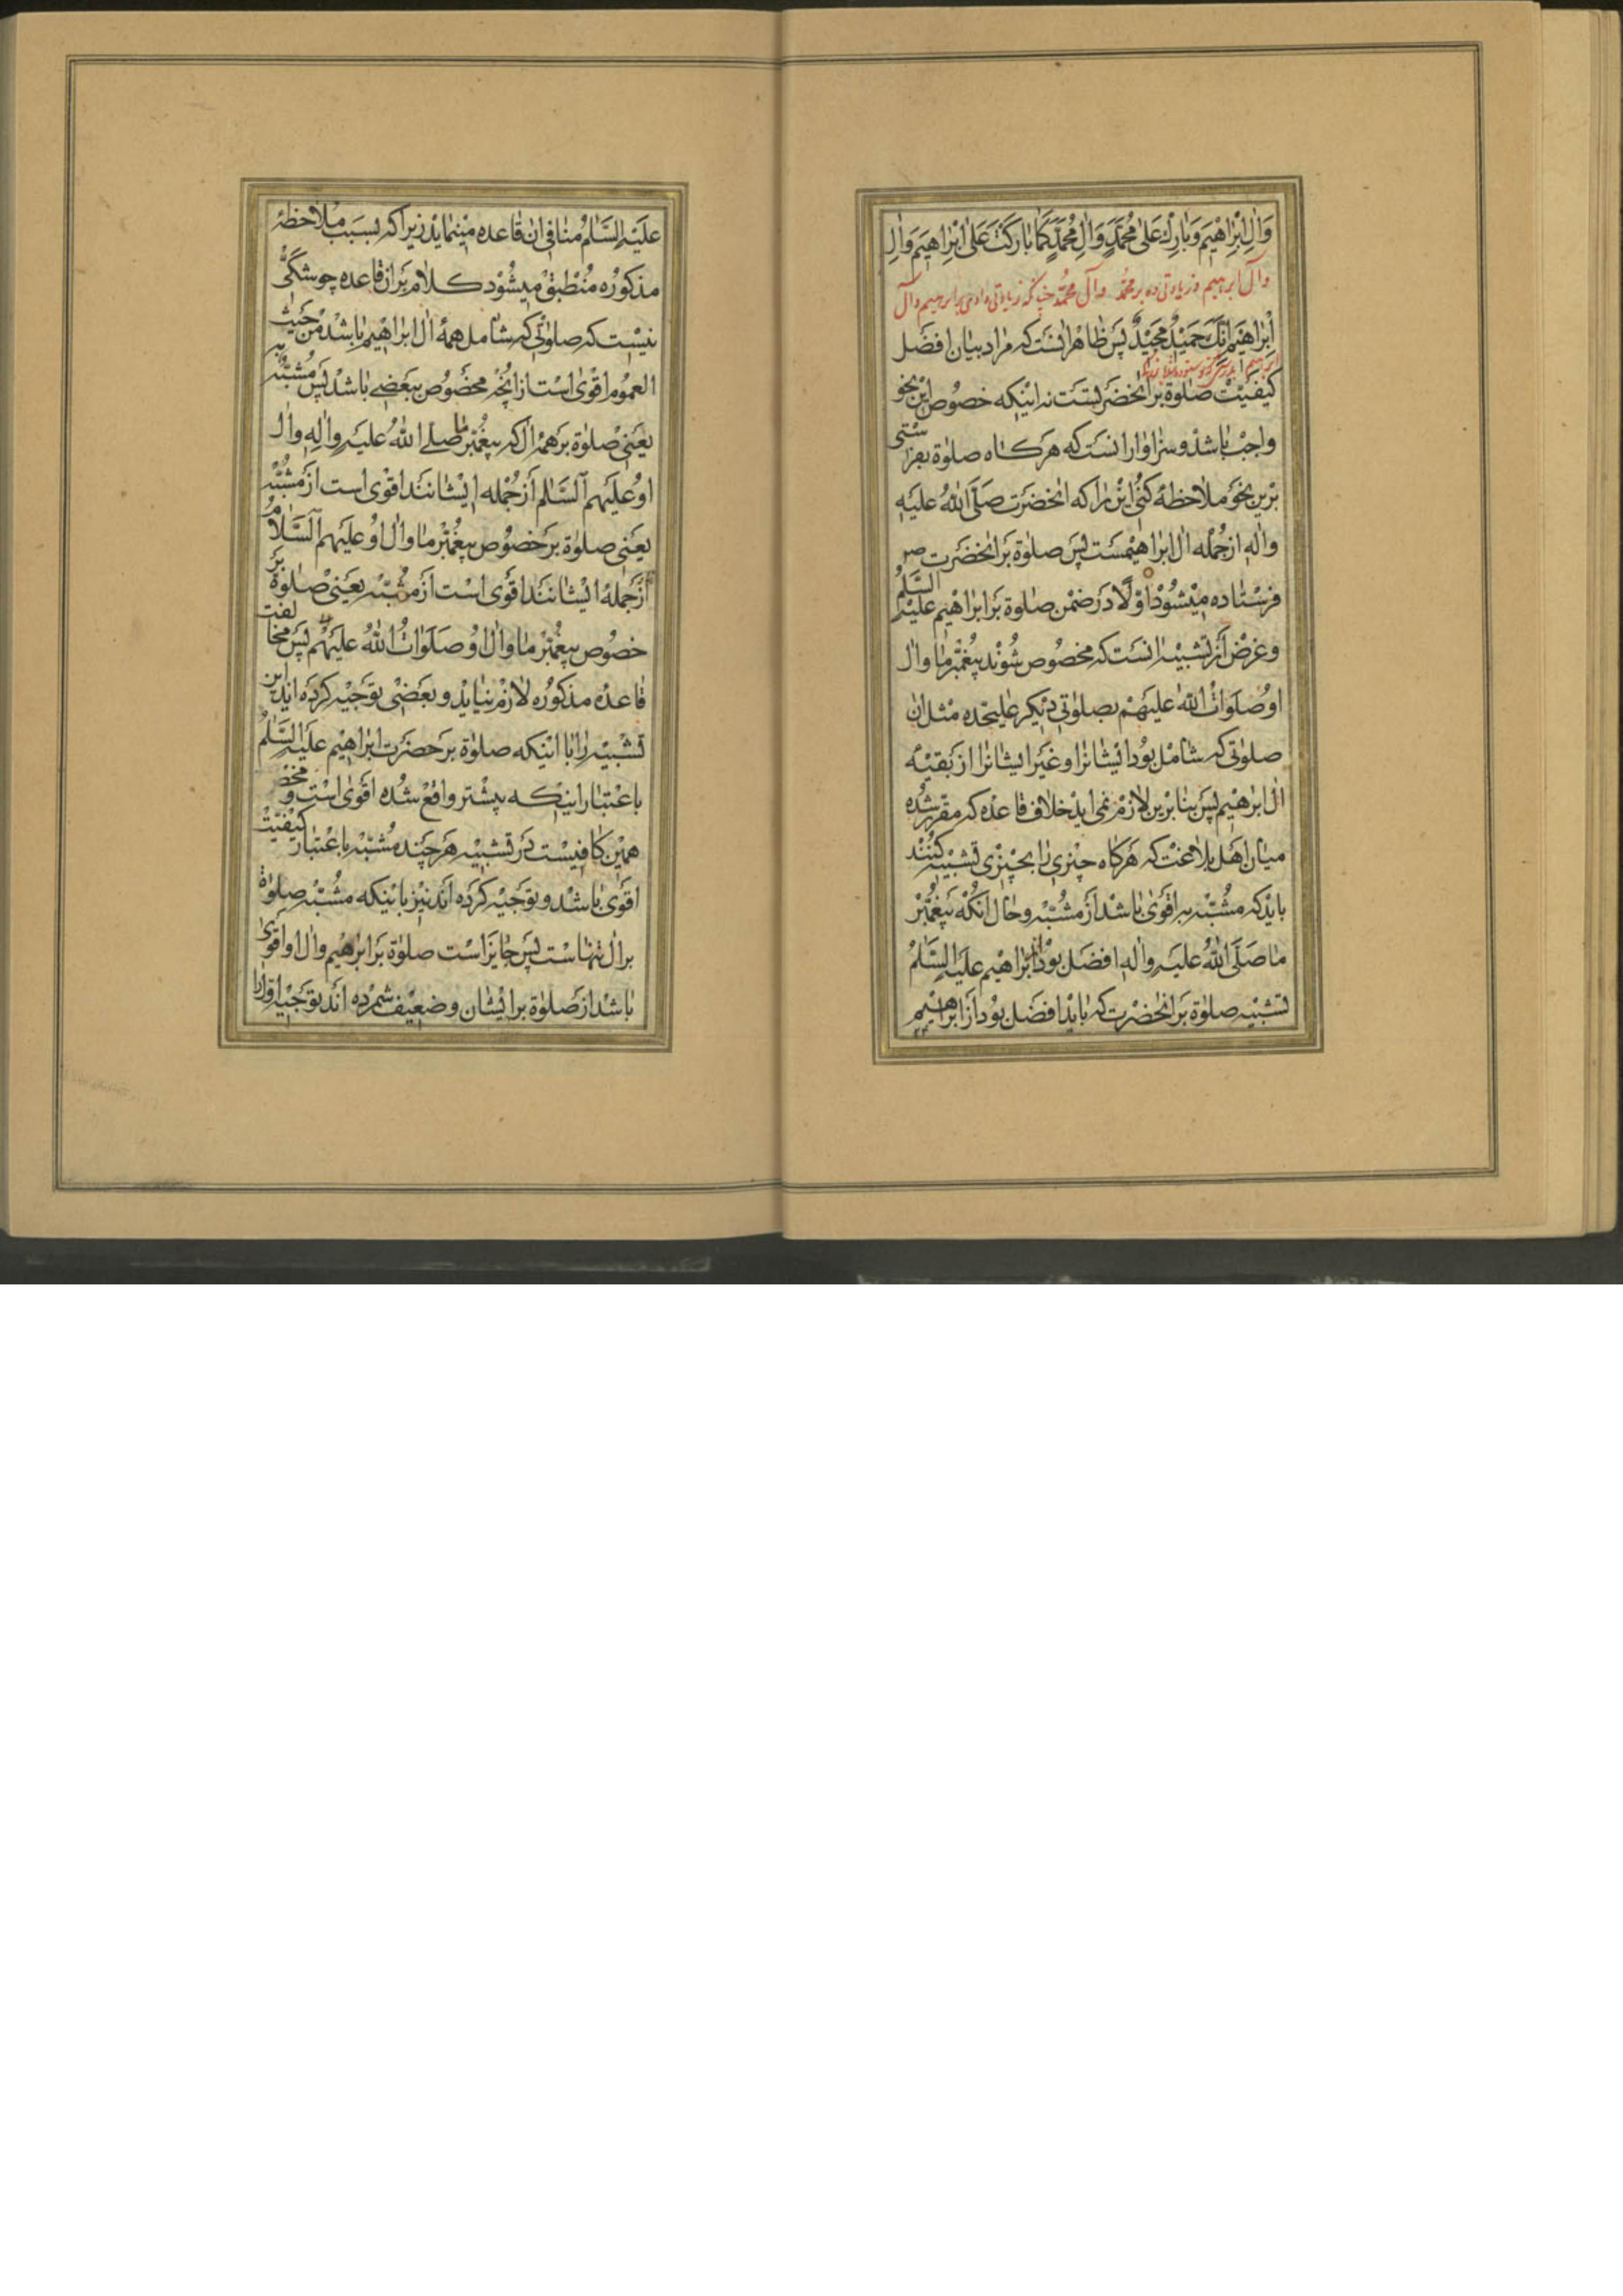 وَآلِ اِبْرٰاهٖیمَ وَبٰارِكْ عَلیٰ مُحَمَّدٍ وَآلِ مُحَمَّدٍ کَمٰا بٰارَکْتَ عَلیٰ اِبْرٰاهٖیمَ وَاٰلِ
وآل ابرهیم و زیادتی ده بر محمّد وآل محمّد چنانکه زیادتی دادی بر ابرهیم وآل
اِبْرٰاهٖیمَ اِنَّكَ حَمٖیدٌ مَجٖیدٌ پس ظاهر انست که مراد بیان افضل
ابرهیم
کیفیت صلوة بر انحضرتست نه اینکه خصوص این نحو
واجب باشد و سزاوار انست که هرکاه صلوة بفرستی
برین نحو ملاحظه کنی این را که انحضرت صلّی الله علیه
واله از جمله ال ابراهیمست پس صلوة بر انحضرت ص
فرستاده میشود اوّلا در ضمن صلوة بر ابراهیم علیه السّلم
وغرض از تشبیه انست که مخصوص شوند پیغمبر ما وال
او صلوات الله علیهم بصلوتی دیکر علیحده مثل ان
صلوتی که شامل بود ایشانرا و غیر ایشانرا از بقیّه
ال ابرهیم پس بنابرین لازم نمی اید خلاف قاعده که مقرر شده
میان اهل بلاغت که هرکاه چیزی را بچیزی تشبیه کنند
باید که مشبّه به اقوی باشد از مشبّه وحال انکه پیغمبر
ما صلّی الله علیه واله افضل بود از ابراهیم علیه السّلم
تشبیه صلوة بر انحضرت که باید افضل بود از ابراهیم
علیه السّلم منافی ان قاعده مینماید زیرا که بسبب ملاحظه
مذکوره منطبق میشود کلام بران قاعده چو شکّی
نیست که صلوتی که شامل همه ال ابراهیم باشد من حیث
العموم اقوی است از انچه مخصوص ببعضی باشد پس مشبّه به
یعنی صلوة بر همه ال که پیغمبر ما صلی الله علیه واله وال
او علیهم السّلم از جمله ایشانند اقوی است از مشبّه
یعنی صلوة بر خصوص پیغمبر ما وال او علیهم السّلام
از جملهٔ ایشانند اقوی است از مشبّه یعنی صلوة بر
خصوص پیغمبر ما وال او صلوات الله علیهم پس مخالفت
قاعده مذکوره لازم نیاید و بعضی توجیه کرده اند این
تشبیه را با اینکه صلوة بر حضرت ابراهیم علیه السّلم
باعتبار اینکه پیشتر واقع شده اقوی است و محض
همین کافیست در تشبیه هرچند مشبّه باعتبار کیفیّت
اقوی باشد و توجیه کرده اند نیز باینکه مشبّه صلوة
بر ال تنهاست پس جایز است صلوة بر ابرهیم وال او اقوی
باشد از صلوة بر ایشان و ضعیف شمرده اند توجیه اوّلرا